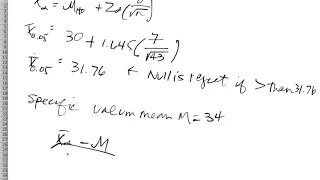 x̄α = M_H0 + Zα(σ/√n)
x̄0.05 = 30 + 1.645(7/√43)
x̄0.05 = 31.76 ← Null is reject if > than 31.76
Specific value mean M = 34
x̄α - M